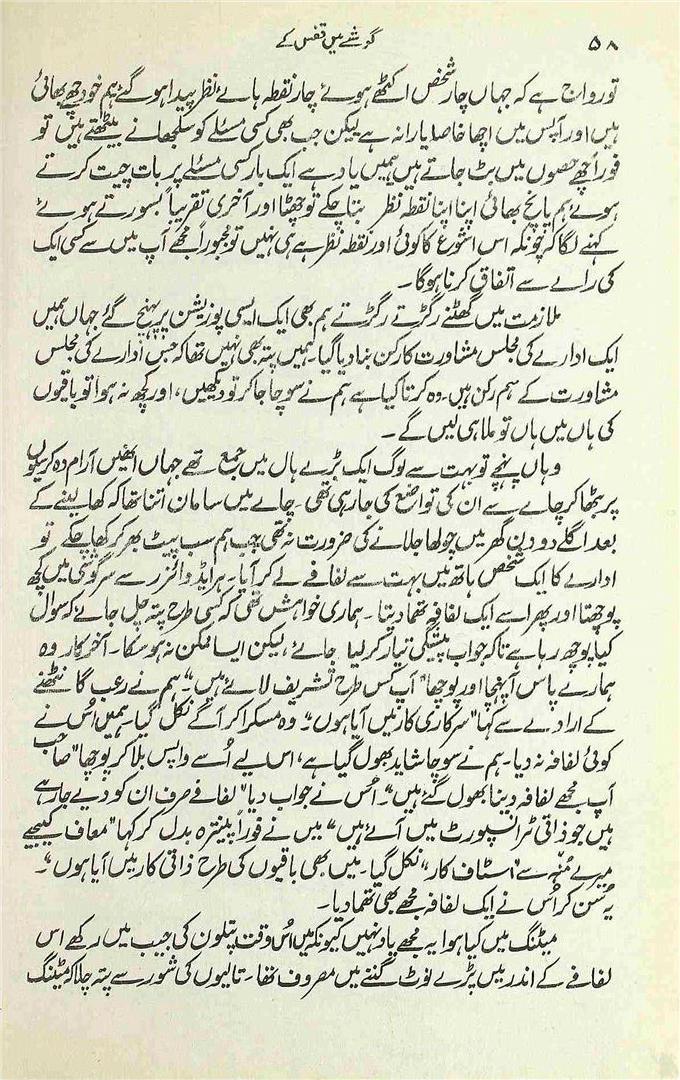 ۵۸
گوشے میں قفس کے
تو رواج ہے کہ جہاں چار شخص اکٹھے ہوئے چار نقطہ ہائے نظر پیدا ہو گئے ہم خود چھ بھائی
ہیں اور آپس میں اچھا خاصا یارانہ ہے لیکن جب بھی کسی مسئلے کو سلجھانے بیٹھتے ہیں تو
فوراً چھ حصوں میں بٹ جاتے ہیں ہمیں یاد ہے ایک بار کسی مسئلے پر بات چیت کرتے
ہوئے ہم پانچ بھائی اپنا اپنا نقطہ نظر بتا چکے تو چھٹا اور آخری تقریباً بسورتے ہوئے
کہنے لگا کہ چونکہ اس اشوع کا کوئی اور نقطہ نظر ہے ہی نہیں تو مجبوراً مجھے آپ میں سے کسی ایک
کی رائے سے اتفاق کرنا ہوگا۔
ملازمت میں گھٹنے رگڑتے رگڑتے ہم بھی ایک ایسی پوزیشن پر پہنچ گئے جہاں ہمیں
ایک ادارے کی مجلس مشاورت کا رکن بنا دیا گیا۔ ہمیں پتہ بھی نہیں تھا کہ جس ادارے کی مجلس
مشاورت کے ہم رکن ہیں۔ وہ کرتا کیا ہے ہم نے سوچا جا کر تو دیکھیں، اور کچھ نہ ہوا تو باقیوں
کی ہاں میں ہاں تو ملا ہی لیں گے۔
وہاں پہنچے تو بہت سے لوگ ایک بڑے ہال میں جمع تھے جہاں انھیں آرام دہ کرسیوں
پر بٹھا کر چائے سے ان کی تواضع کی جا رہی تھی۔ چائے میں سامان اتنا تھا کہ کھا لینے کے
بعد اگلے دو دن گھر میں چولھا جلانے کی ضرورت نہ تھی جب ہم سب پیٹ بھر کر کھا چکے تو
ادارے کا ایک شخص ہاتھ میں بہت سے لفافے لے کر آیا۔ ہر ایڈوائزر سے سرگوشی میں کچھ
پوچھتا اور پھر اسے ایک لفافہ تھما دیتا۔ ہماری خواہش تھی کہ کسی طرح پتہ چل جائے کہ سوال
کیا پوچھ رہا ہے تاکہ جواب پیشگی تیار کر لیا جائے، لیکن ایسا ممکن نہ ہو سکا۔ آخر کار وہ
ہمارے پاس آ پہنچا اور پوچھا "آپ کس طرح تشریف لائے ہیں"۔ ہم نے رعب گانٹھنے
کے ارادے سے کہا "سرکاری کار میں آیا ہوں"۔ وہ مسکرا کر آگے نکل گیا۔ ہمیں اُس نے
کوئی لفافہ نہ دیا۔ ہم نے سوچا شاید بھول گیا ہے، اس لیے اُسے واپس بلا کر پوچھا "صاحب
آپ مجھے لفافہ دینا بھول گئے ہیں"۔ اُس نے جواب دیا "لفافے صرف ان کو دیے جا رہے
ہیں جو ذاتی ٹرانسپورٹ میں آئے ہیں" میں نے فوراً پینترہ بدل کر کہا "معاف کیجیے
میرے مُنہ سے "اسٹاف کار" نکل گیا۔ میں بھی باقیوں کی طرح ذاتی کار میں آیا ہوں"۔
یہ سُن کر اُس نے ایک لفافہ مجھے بھی تھما دیا۔
میٹنگ میں کیا ہوا یہ مجھے یاد نہیں کیونکہ میں اُس وقت پتلون کی جیب میں رکھے اس
لفافے کے اندر میں پڑے نوٹ گننے میں مصروف تھا۔ تالیوں کی شور سے پتہ چلا کہ میٹنگ